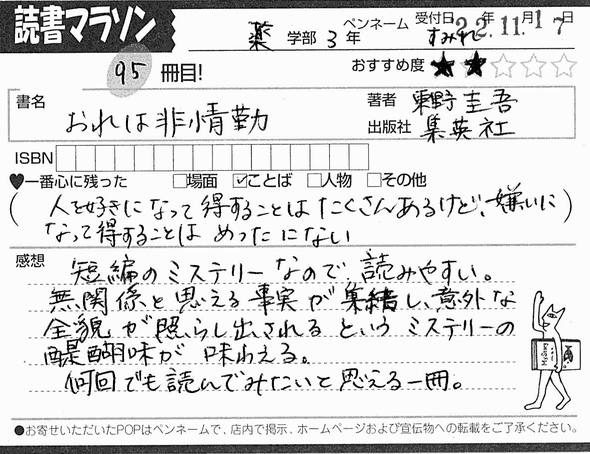 読書マラソン
薬 学部 3 年 ペンネーム すみれ 受付日 22年 11月 17日
95 冊目! おすすめ度 ★★☆☆☆
書名 おれは非情勤 著者 東野圭吾
出版社 集英社
ISBN
♥一番心に残った □場面 ☑ことば □人物 □その他
(人を好きになって得することはたくさんあるけど、嫌いに)
なって得することは めったにない
感想 短編のミステリーなので、読みやすい。
無関係と思える事実が集結し、意外な
全貌が照らし出されるというミステリーの
醍醐味が味わえる。
何回でも読んでみたいと思える一冊。
●お寄せいただいたPOPはペンネームで、店内で掲示、ホームページおよび宣伝物への転載をご了承ください。